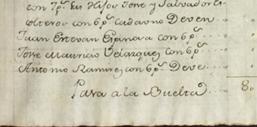 con 7p.s sus hijos Jose y Salvador
solteros con 6p.s cada uno Deven
Juan Estevan Espinosa con 6p.s
Jose Mauricio Velazquez con 6p.s
Antonio Ramires con 6p.s Deve
Pasa a la Buelta 8